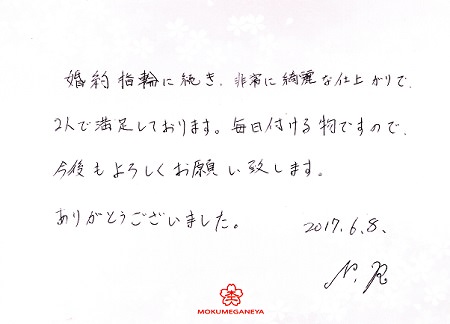 婚約指輪に続き、非常に綺麗な仕上がりで、
2人で満足しております。毎日付ける物ですので、
今後もよろしくお願い致します。
ありがとうございました。
2017.6.8.
N.R
MOKUMEGANEYA